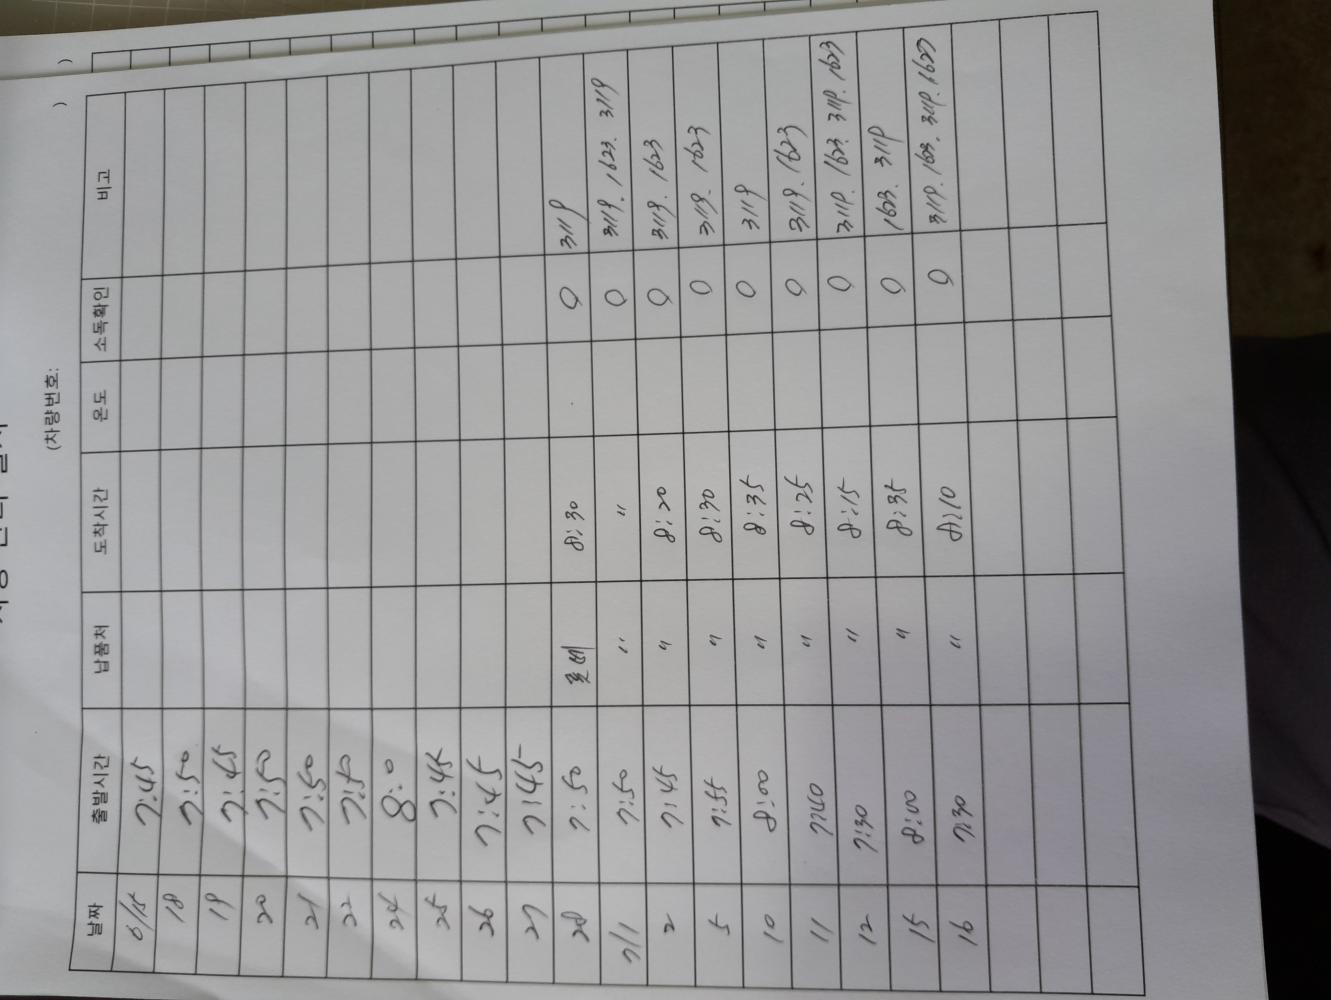 (차량번호: )
날짜 출발시간 납품처 도착시간 온도 소독확인 비고
6/15 7:45
18 7:50
19 7:45
20 7:50
21 7:50
22 7:50
24 8:0
25 7:45
26 7:45
27 7:45
28 7:50 8:30 O 3119
7/1 7:50 " " O 3119. 1623. 3119
2 7:45 " 8:20 O 3119. 1623
5 7:55 " 8:30 O 3119. 1623
10 8:00 " 8:35 O 3119
11 7:40 " 8:25 O 3119. 1623
12 7:30 " 8:15 O 3119. 1623 3119. 1623
15 8:00 " 8:35 O 1623. 3119
16 7:30 " 8:10 O 3119. 1623. 3119. 1623